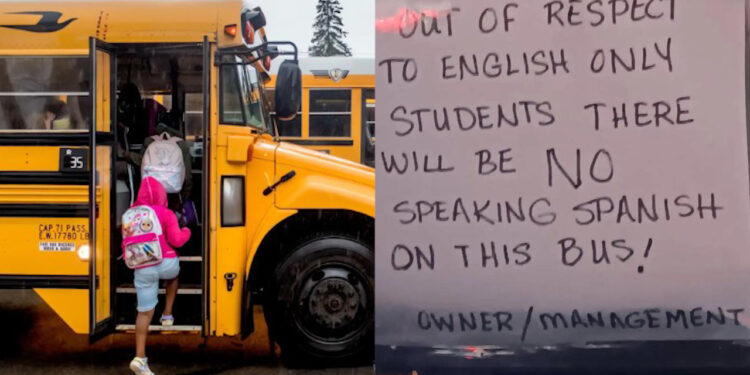 35
CAP. 71 PASS.
E.W. 17780 LB
OUT OF RESPECT
TO ENGLISH ONLY
STUDENTS THERE
WILL BE NO
SPEAKING SPANISH
ON THIS BUS!
OWNER/MANAGEMENT